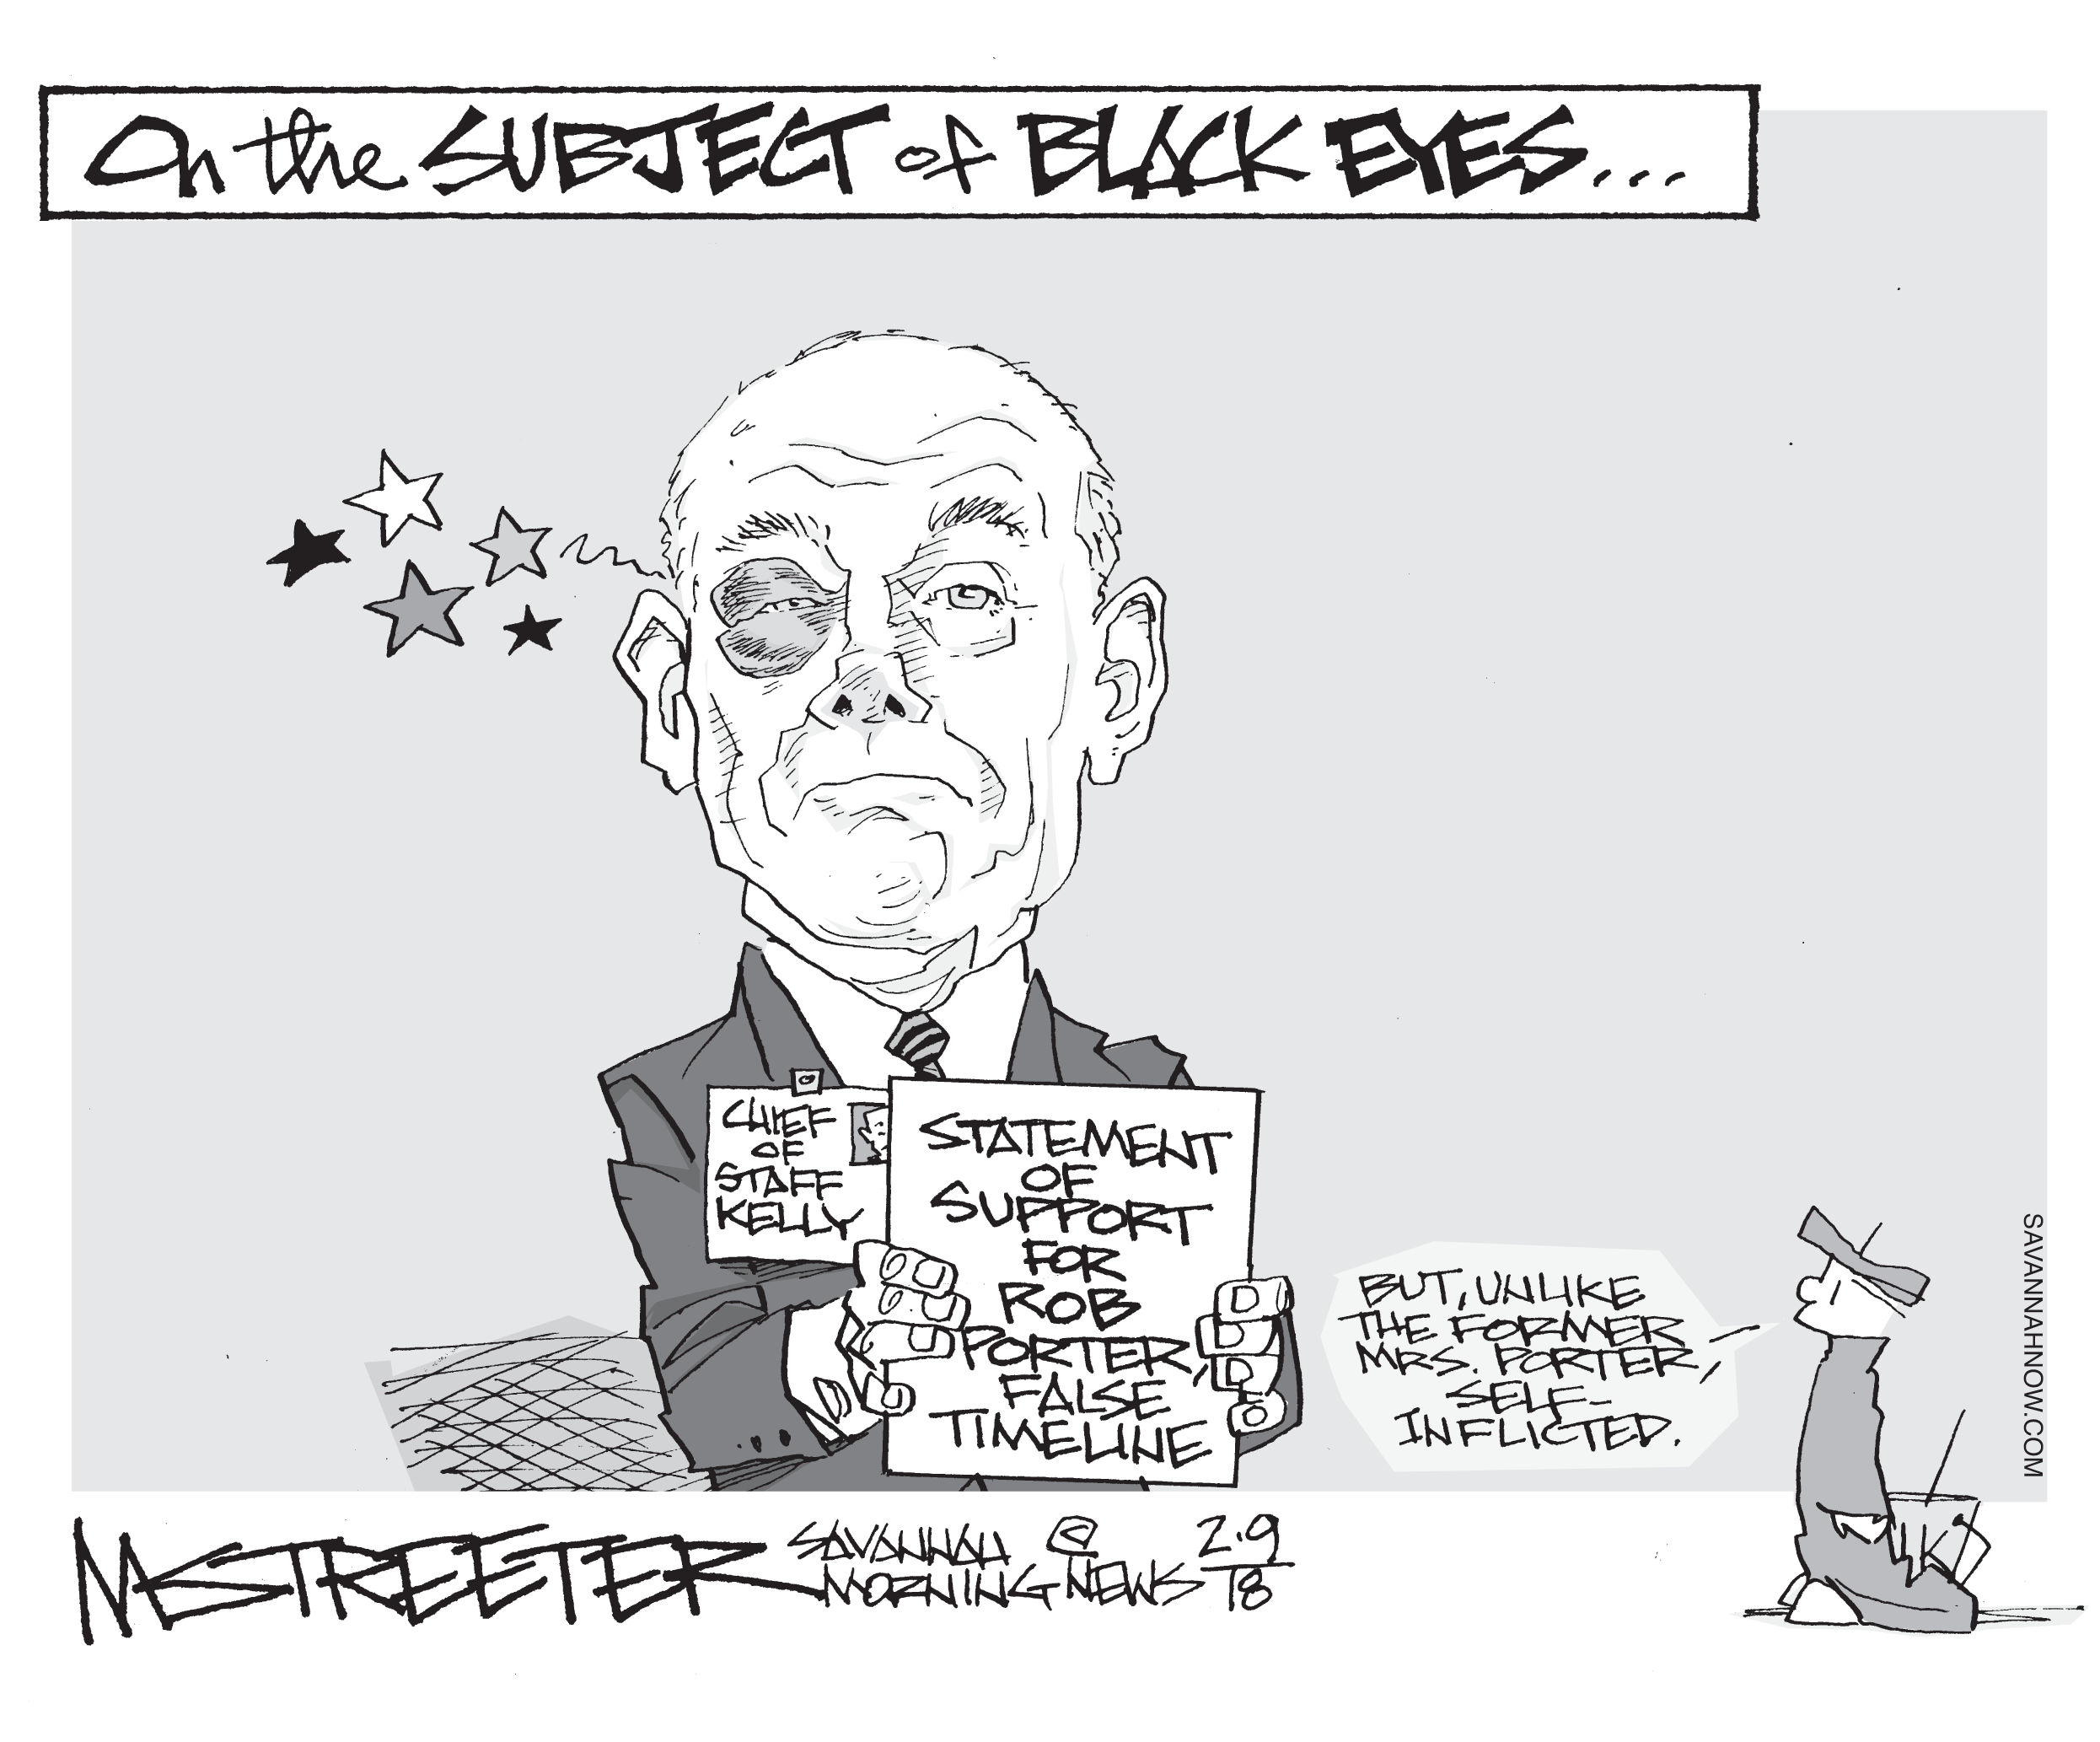 On the SUBJECT of BLACK EYES...
CHIEF
OF
STAFF
KELLY
STATEMENT
OF
SUPPORT
FOR
ROB
PORTER,
FALSE
TIMELINE
BUT, UNLIKE
THE FORMER
MRS. PORTER,
SELF-
INFLICTED.
SAVANNAHNOW.COM
MSTREETER
SAVANNAH
MORNING NEWS
©
2.9
18